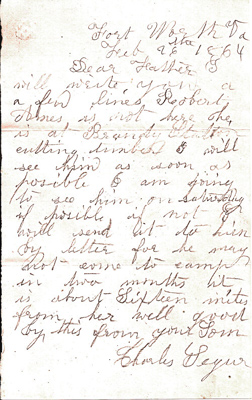 Fort Worth Va
Feb 26th 1864
Dear Father I
will write you a
a few lines Robert
James is not here he
is at
cutting timber I will
see him as soon as
posible I am going
to see him on saturday
if posible if not I
will send it to him
by letter for he may
not come to camp
in two months it
is about Sixteen miles
from her well good
by this from your Son
Charles Segur